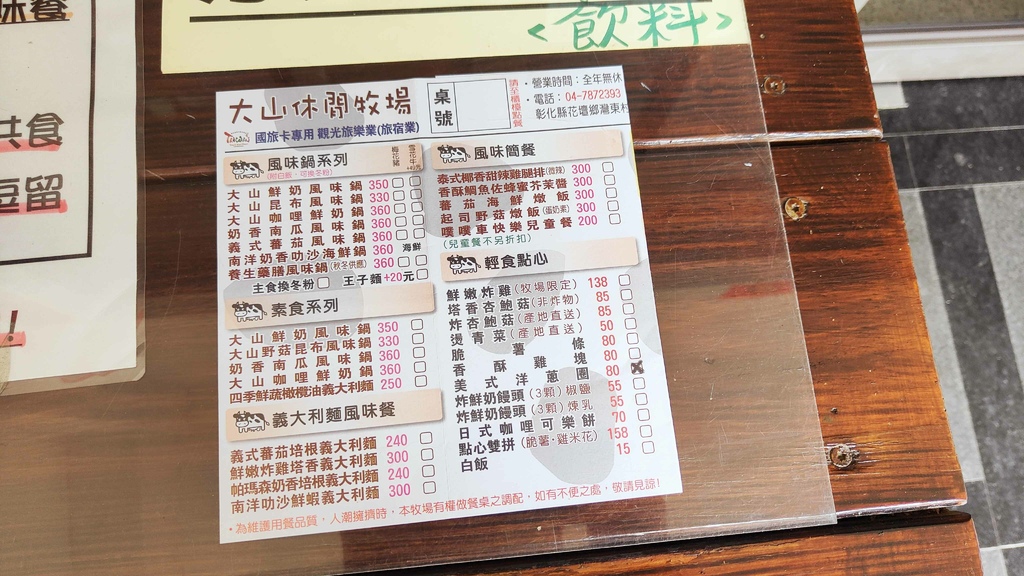 味餐
共食
豆留
!
<飲料>
大山休閒牧場
國旅卡專用 觀光旅樂業(旅宿業)
桌號
請至櫃檯點餐
・營業時間：全年無休
・電話：04-7872393
彰化縣花壇鄉灣東村
風味鍋系列
(附白飯，可換冬粉)
梅花豬
雪花牛
大山鮮奶風味鍋 350
大山昆布風味鍋 330
大山咖哩鮮奶鍋 360
奶香南瓜風味鍋 360
義式蕃茄風味鍋 360
南洋奶香叻沙海鮮鍋 360 海鮮
養生藥膳風味鍋(秋冬供應) 360
主食換冬粉 王子麵+20元
素食系列
大山鮮奶風味鍋 350
大山野菇昆布風味鍋 330
奶香南瓜風味鍋 360
大山咖哩鮮奶鍋 360
四季鮮蔬橄欖油義大利麵 250
義大利麵風味餐
義式蕃茄培根義大利麵 240
鮮嫩炸雞塔香義大利麵 300
帕瑪森奶香培根義大利麵 240
南洋叻沙鮮蝦義大利麵 300
風味簡餐
泰式椰香甜辣雞腿排(微辣) 300
香酥鯛魚佐蜂蜜芥茉醬 300
蕃茄海鮮燉飯 300
起司野菇燉飯(蛋奶素) 300
噗噗車快樂兒童餐 200
(兒童餐不另折扣)
輕食點心
鮮嫩炸雞(牧場限定) 138
塔香杏鮑菇(非炸物) 85
炸杏鮑菇(產地直送) 85
燙青菜(產地直送) 50
脆薯條 80
香酥雞塊 80
美式洋蔥圈 80
炸鮮奶饅頭(3顆)椒鹽 55
炸鮮奶饅頭(3顆)煉乳 55
日式咖哩可樂餅 70
點心雙拼(脆薯・雞米花) 158
白飯 15
・為維護用餐品質，人潮擁擠時，本牧場有權做餐桌之調配，如有不便之處，敬請見諒！